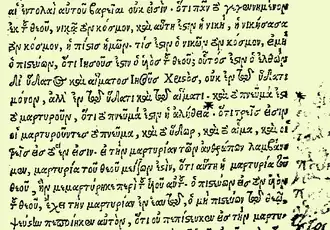 αἱ ἐντολαὶ αὐτοῦ βαρεῖαι οὐκ εἰσίν. ὅτι πᾶν τὸ γεγεννημένον
ἐκ τοῦ θεοῦ, νικᾷ τὸν κόσμον, καὶ αὕτη ἐστὶν ἡ νίκη, ἡ νικήσασα
τὸν κόσμον, ἡ πίστις ἡμῶν. τίς ἐστιν ὁ νικῶν τὸν κόσμον, εἰ μὴ
ὁ πιστεύων, ὅτι Ἰησοῦς ἐστὶν ὁ ὑὸς τοῦ θεοῦ; οὗτός ἐστιν ὁ ἐλθὼν
δι ὕδατος καὶ αἵματος Ἰησοῦς Χριστὸς, οὐκ ἐν τῷ ὕδατι
μόνον, ἀλλ' ἐν τῷ ὕδατι καὶ αἵματι. καὶ τὸ πνεῦμά ἐστι
τὸ μαρτυροῦν, ὅτι τὸ πνεῦμά ἐστιν ἡ ἀλήθεια. ὅτι τρεῖς εἰσιν
οἱ μαρτυροῦντες τὸ πνεῦμα, καὶ τὸ ὕδωρ, καὶ τὸ αἷμα, καὶ οἱ
τρεῖς εἰς τὸ ἕν εἰσιν. εἰ τὴν μαρτυρίαν τῶν ἀνθρώπων λαμβάνο
μεν, μαρτυρία τοῦ θεοῦ μείζων ἐστίν, ὅτι αὕτη ἡ μαρτυρία τοῦ
θεοῦ, ἣν μεμαρτύρηκε περὶ τοῦ ὑοῦ αὐτοῦ. ὁ πιστεύων εἰς τὸν ὑὸν
τοῦ θεοῦ, ἔχει τὴν μαρτυρίαν ἐν ἑαυτῷ, ὁ μὴ πιστεύων τῷ θεῷ,
ψεύστην πεποίηκεν αὐτὸν, ὅτι οὐ πεπίστευκεν εἰς τὴν μαρτυ